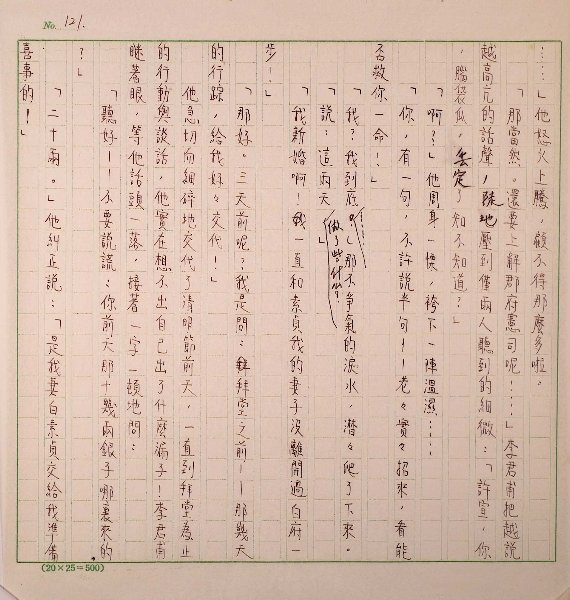 No. 121.
……」他怒火上騰，顧不得那麼多啦。
「那當然。還要上解郡府憲司呢！…」李君甫把越說
越高亢的話聲，陡地壓到僅兩人聽到的細微：「許宣，你
，腦袋瓜，丟定了知不知道？」
「啊？」他周身一慄，袴下一陣溫濕……
「你，有一句，不許說半句！－老々實々招來，看能
否救你一命！」
「我？我到底……」那不爭氣的淚水，潛々爬了下來。
「說：這兩天做了些什么？」
「我新婚啊！我一直和素貞我的妻子沒離開過白府一
步！」
「那好。三天前呢？我是問：拜堂之前－－那幾天
的行踪，給我好々交代！」
他急切向細碎地交代了清明節前天，一直到拜堂為止
的行動與談話，他實在想不出自己出了什麼漏子！李君甫
瞇著眼，等他話頭一落，接著一字一頓地問：
「聽好！－不要說謊：你前天那十幾兩銀子哪裏來的
？」
「二十兩。」他糾正說：「是我妻白素貞交給我準備
喜事的！」
(20×25=500)